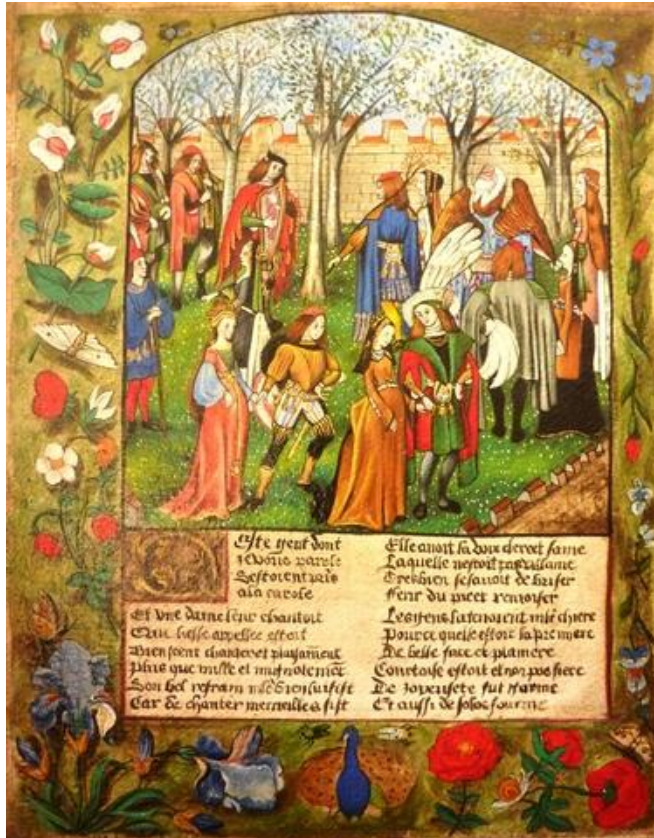 Ceste gent dont
je vous parole
Sestoient pris
a la carole
Et vne dame leur chantoit
Que liesse appellee estoit
Bien sceut chanter et plaisament
Plus que nulle et mignotemēt
Son bel refrain mlt bien lui sist
Car de chanter merueilles fist
Elle auoit la voix clere et saine
Laquelle nestoit pas villaine
Tresbien se sauoit de briser
Ferir du piet renvoiser
Les gens la tenoient mlt chiere
Pource quelle estoit la premiere
De belle face et planiere
Courtoise estoit et non pas fiere
De fut
Et aussi de solas